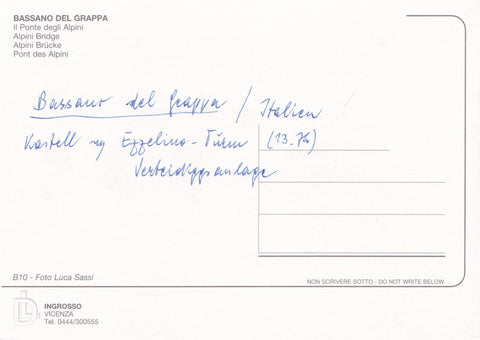 BASSANO DEL GRAPPA
Il Ponte degli Alpini
Alpini Bridge
Alpini Brücke
Pont des Alpini
Bassano del Grappa / Italien
Kastell Ezzelino-Turm (13. Jh)
Verteidiggsanlage
B10 - Foto Luca Sassi
NON SCRIVERE SOTTO · DO NOT WRITE BELOW
INGROSSO
VICENZA
Tel. 0444/300555